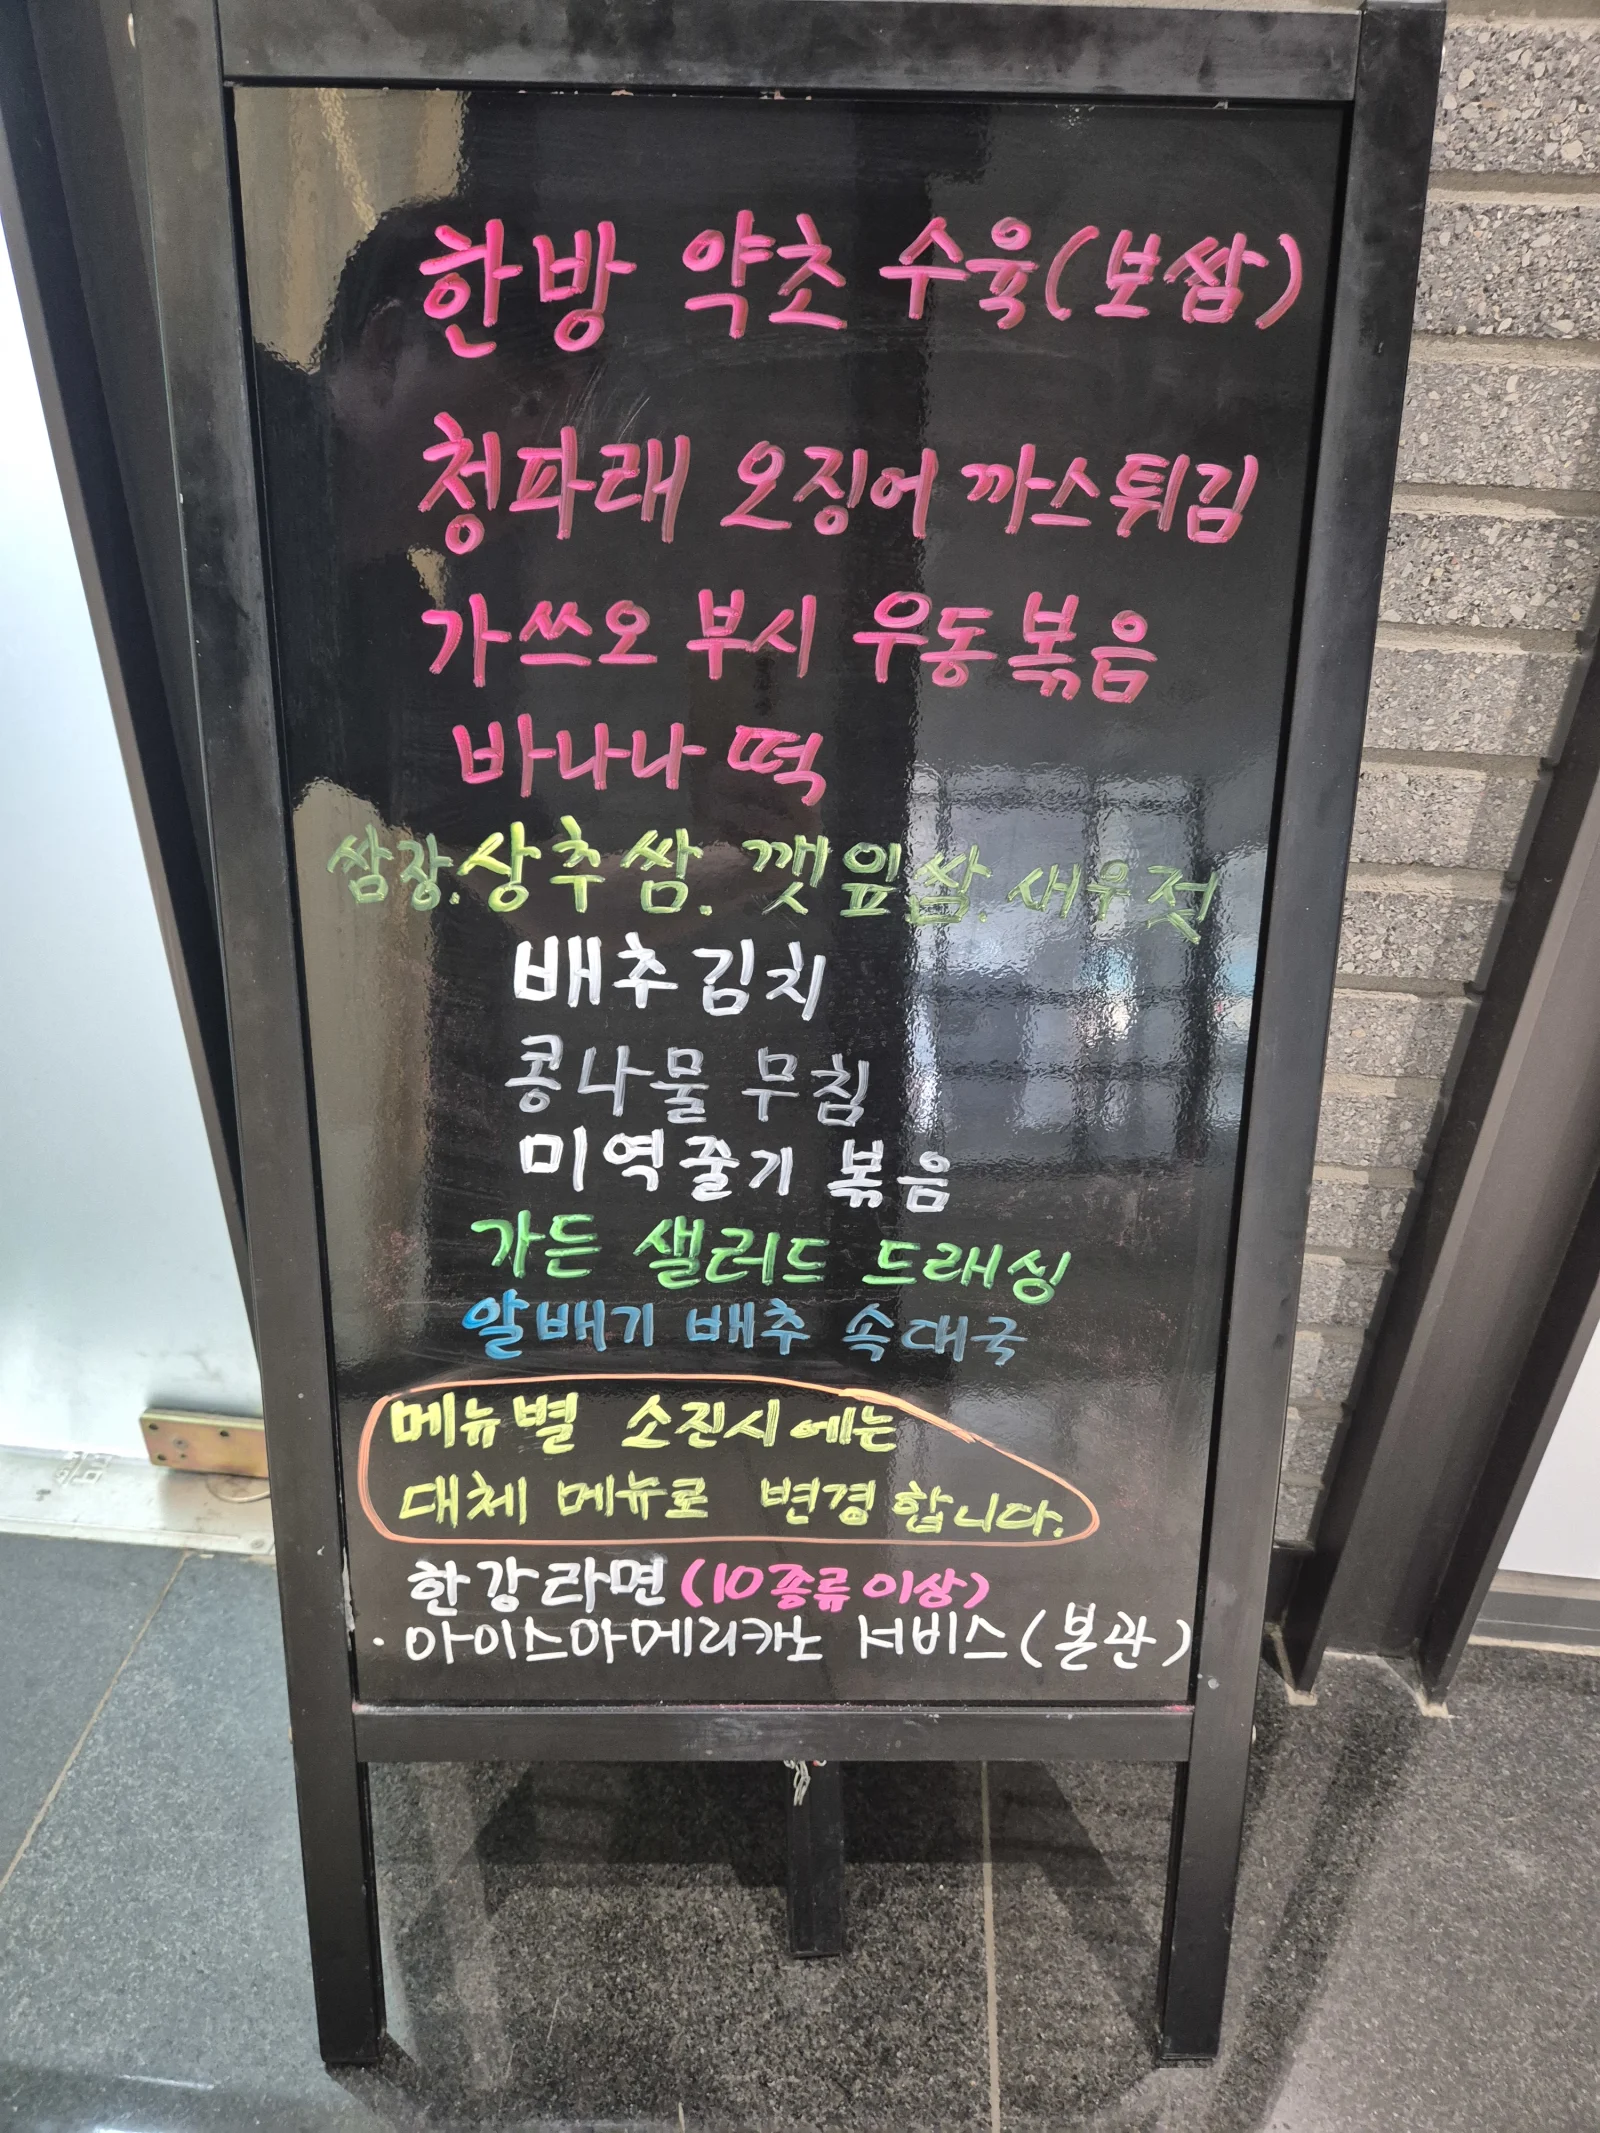 한방 약초 수육(보쌈)
청파래 오징어 까스튀김
가쓰오 부시 우동볶음
바나나 떡
쌈장. 상추쌈. 깻잎쌈. 새우젓
배추김치
콩나물 무침
미역줄기 볶음
가든 샐러드 드래싱
알배기 배추 속대국
메뉴별 소진시에는
대체 메뉴로 변경합니다.
한강라면(10종류이상)
·아이스아메리카노 서비스(본관)